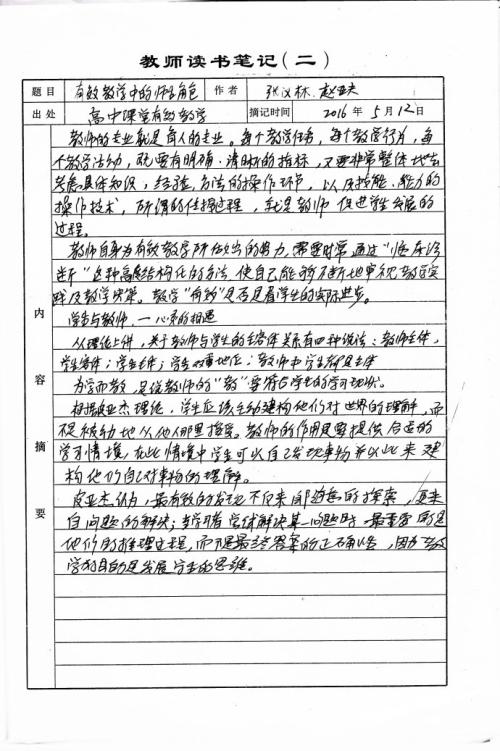 教师读书笔记(二)
题目 有效教学中的师生角色 作者 张汉林、赵亚夫
出处 高中课堂有效教学 摘记时间 2016年5月12日
内容摘要
教师的专业就是育人的专业。每个教学任务,每个教学行为,每
个教学活动,既要有明确、清晰的指标,又要非常整体地去
考虑具体知识、经验、方法的操作环节,以及技能、能力的
操作技术,所谓的住操过程,就是教师促进学生发展的
过程。
教师自身为有效教学所付出的努力,需要时常通过“临床诊
断”这种高度结构化的方法,使自己能够不断地审视教育实
践及教学决策。教学“有效”是否是看学生的实际进步。
学生与教师,一心灵的相遇
从理论上讲,关于教师与学生的主客体关系有四种说法:教师主体,
学生客体;学生主体;学生双重地位;教师和学生都是主体
为学而教,是说教师的“教”要符合学生的学习现状。
根据皮亚杰理论,学生应该主动建构他们对世界的理解,而
不是被动地从他人那里接受。教师的作用是要提供合适的
学习情境,在此情境中学生可以自己发现事物并以此来建
构他们自己对事物的理解。
皮亚杰认为,最有效的发现不仅来自随意的探索,更来
自问题的解决;当学习者尝试解决某一问题时,最重要的是
他们的推理过程,而不是最终答案的正确与否,因为教
学的目的是发展学生的思维。